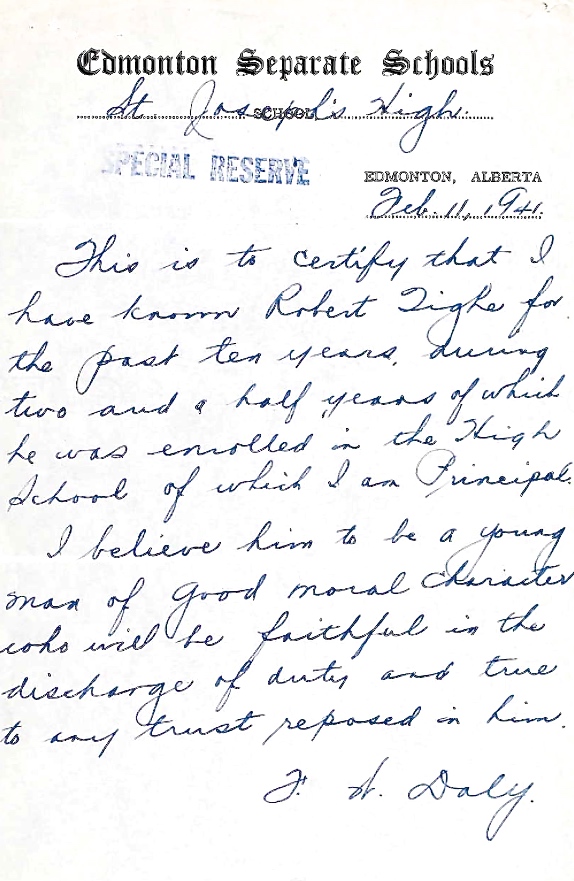 Edmonton Separate Schools
St. Joseph's High.
SCHOOL
SPECIAL RESERVE
EDMONTON, ALBERTA
Feb. 11, 1941.
This is to certify that I
have known Robert Tighe for
the past ten years, during
two and a half years of which
he was enrolled in the High
School of which I am Principal.
I believe him to be a young
man of good moral character
who will be faithful in the
discharge of duty and true
to any trust reposed in him.
F. A. Daly.